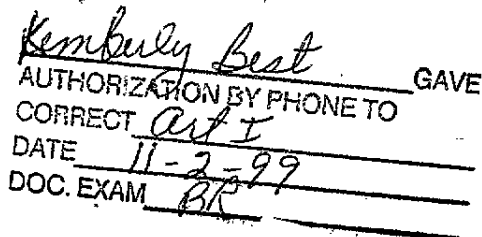 Kimberly Best GAVE
AUTHORIZATION BY PHONE TO
CORRECT Art I
DATE 11-2-99
DOC. EXAM BR